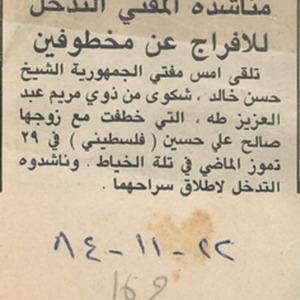 مناشدة المفتي التدخل
للافراج عن مخطوفين
تلقى امس مفتي الجمهورية الشيخ
حسن خالد ، شكوى من ذوي مريم عبد
العزيز طه ، التي خطفت مع زوجها
صالح علي حسين ( فلسطيني ) في ٢٩
تموز الماضي في تلة الخياط . وناشدوه
التدخل لاطلاق سراحهما .
٢٢-١١-٨٤